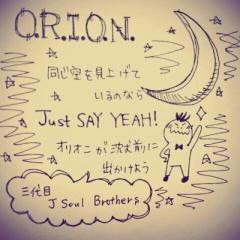 O.R.I.O.N.
同じ空を見上げて
いるのなら
Just SAY YEAH!
オリオンが沈む前に
出かけよう
三代目
J Soul Brothers